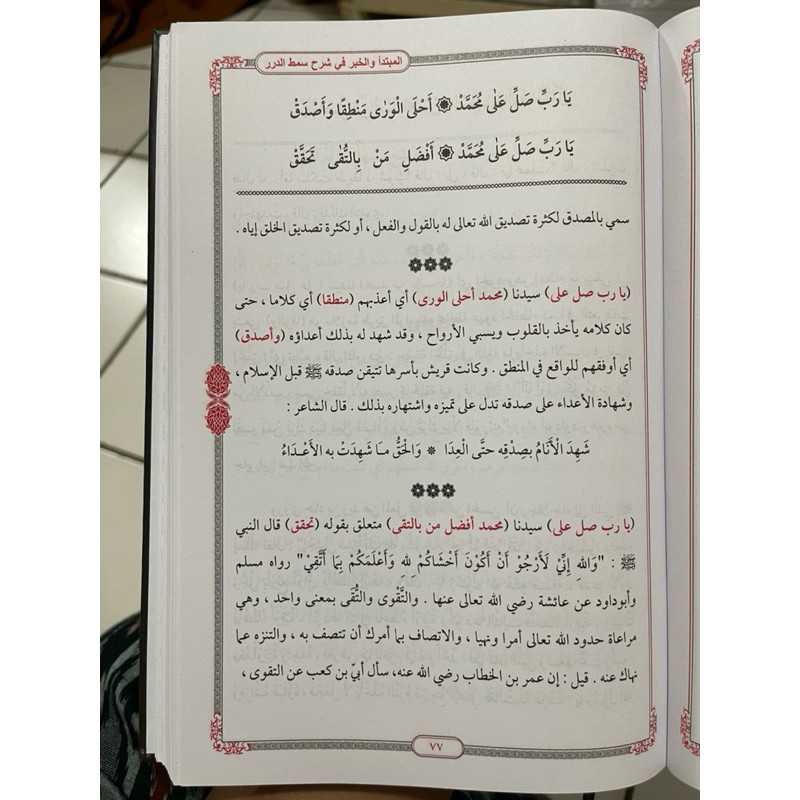 المبتدأ والخبر في شرح سمط الدرر
يَا رَبِّ صَلِّ عَلٰى مُحَمَّدْ ۞ أَحْلَى الْوَرٰى مَنْطِقًا وَأَصْدَقْ
يَا رَبِّ صَلِّ عَلٰى مُحَمَّدْ ۞ أَفْضَلِ مَنْ بِالتُّقٰى تَحَقَّقْ
سمي بالمصدق لكثرة تصديق الله تعالى له بالقول والفعل ، أو لكثرة تصديق الخلق إياه .
(يا رب صل على) سيدنا (محمد أحلى الورى) أي أعذبهم (منطقا) أي كلاما ، حتى
كان كلامه يأخذ بالقلوب ويسبي الأرواح ، وقد شهد له بذلك أعداؤه (وأصدق)
أي أوفقهم للواقع في المنطق . وكانت قريش بأسرها تتيقن صدقه ﷺ قبل الإسلام ،
وشهادة الأعداء على صدقه تدل على تميزه واشتهاره بذلك . قال الشاعر :
شَهِدَ الْأَنَامُ بِصِدْقِه حتَّى الْعِدَا * وَالْحَقُّ مَا شَهِدَتْ به الأَعْدَاءُ
(يا رب صل على) سيدنا (محمد أفضل من بالتقى) متعلق بقوله (تحقق) قال النبي
ﷺ : "وَاللهِ إِنِّيْ لَأَرْجُوْ أَنْ أَكُوْنَ أَخْشَاكُمْ لِلهِ وَأَعْلَمَكُمْ بِمَا أَتَّقِيْ" رواه مسلم
وأبوداود عن عائشة رضي الله تعالى عنها . والتَّقْوى والتُّقَى بمعنى واحد ، وهي
مراعاة حدود الله تعالى أمرا ونهيا ، والاتصاف بما أمرك أن تتصف به ، والتنزه عما
نهاك عنه . قيل : إن عمر بن الخطاب رضي الله عنه، سأل أبيّ بن كعب عن التقوى ،
٧٧